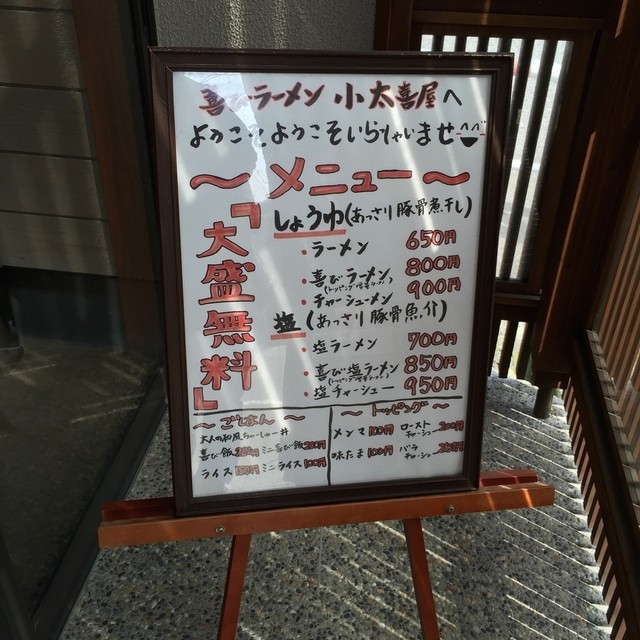 喜びラーメン 小太喜屋へ
ようこそようこそいらっしゃいませ
〜メニュー〜
『大盛無料』
しょうゆ(あっさり豚骨魚干し)
・ラーメン 650円
・喜びラーメン 800円
・チャーシューメン 900円
塩(あっさり豚骨魚介)
・塩ラーメン 700円
・喜び塩ラーメン 850円
・塩チャーシュー 950円
〜ごはん〜
大人の和風ちゃーしゅー丼
喜び飯 ミニ喜び飯
ライス 150円 ミニライス 100円
〜トッピング〜
メンマ 100円 ローストチャーシュー 200円
味たま 100円 バラチャーシュー